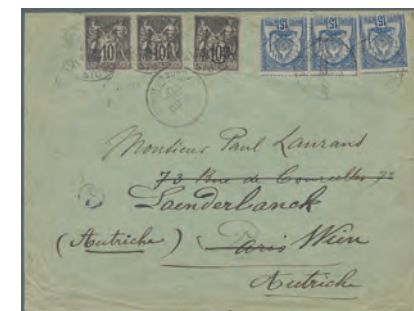 10 10 10 15 15 15
Monsieur Paul Laurans
73 Rue de Courcelles 73
Laenderbanck
(Autriche) Paris Wien
Autriche